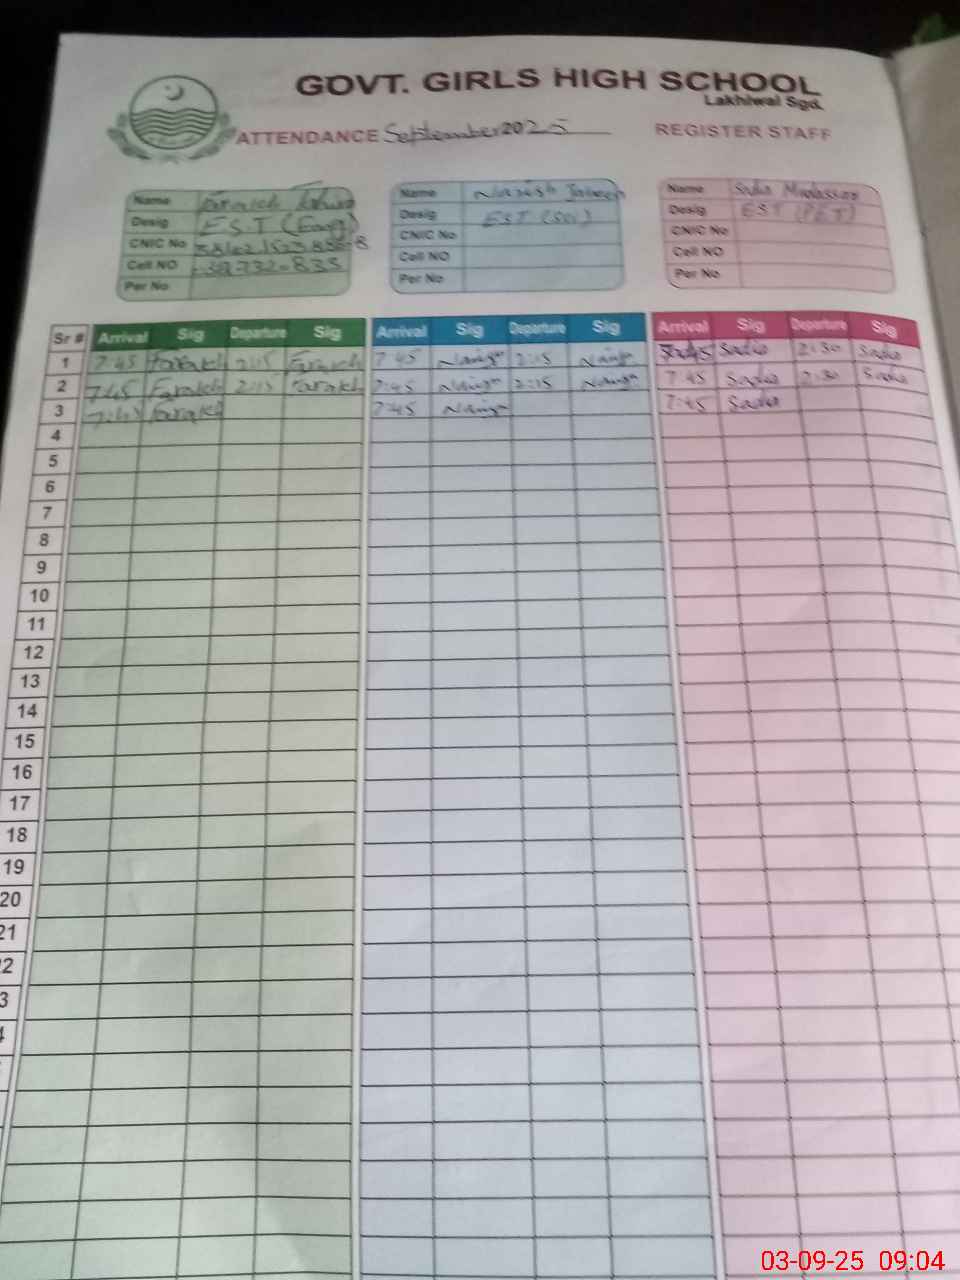 GOVT. GIRLS HIGH SCHOOL
Lakhiwal Sgd.
ATTENDANCE September 2025 REGISTER STAFF
Name
Desig E.S.T (Eng)
CNIC No
Cell NO
Per No
Name Jabeen
Desig EST (Sci)
CNIC No
Cell NO
Per No
Name Sadia Mudassar
Desig EST (PET)
CNIC No
Cell NO
Per No
Sr # Arrival Sig Departure Sig Arrival Sig Departure Sig Arrival Sig Departure Sig
1 7:45 Farakh 2:15 Farakh 7:45 2:15 7:45 Sadia 2:30 Sadia
2 7:45 Farakh 2:15 Farakh 7:45 2:15 7:45 Sadia 2:30 Sadia
3 7:45 Farakh 7:45 7:45 Sadia
4
5
6
7
8
9
10
11
12
13
14
15
16
17
18
19
20
21
2
3
4
03-09-25 09:04